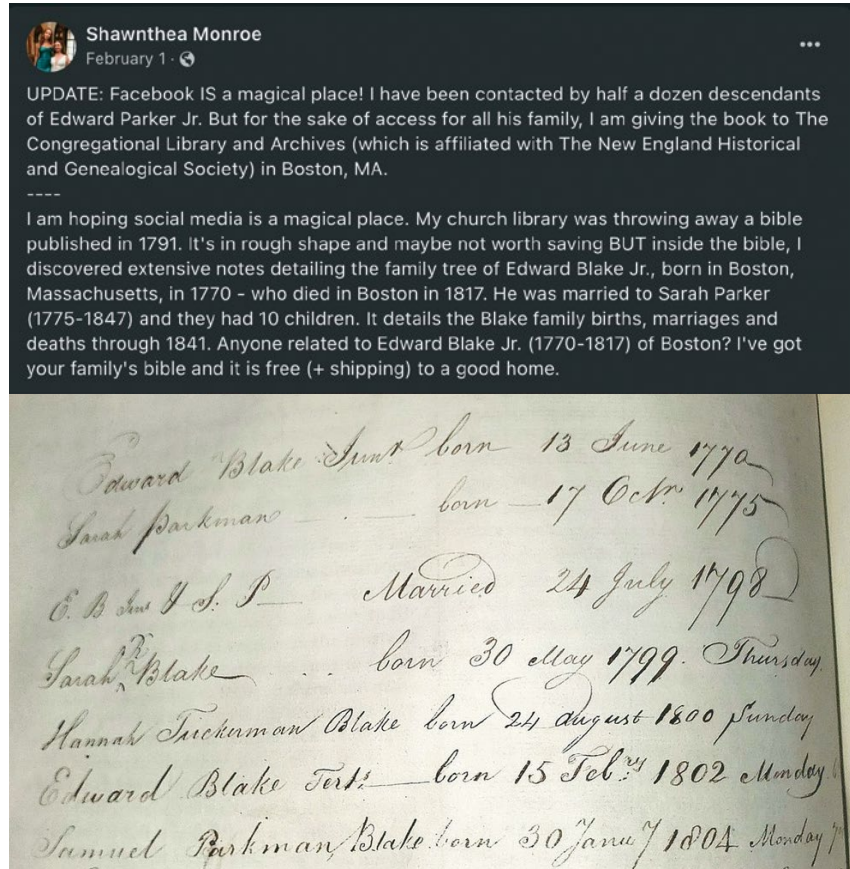 Shawnthea Monroe
February 1 ·
UPDATE: Facebook IS a magical place! I have been contacted by half a dozen descendants
of Edward Parker Jr. But for the sake of access for all his family, I am giving the book to The
Congregational Library and Archives (which is affiliated with The New England Historical
and Genealogical Society) in Boston, MA.
----
I am hoping social media is a magical place. My church library was throwing away a bible
published in 1791. It's in rough shape and maybe not worth saving BUT inside the bible, I
discovered extensive notes detailing the family tree of Edward Blake Jr., born in Boston,
Massachusetts, in 1770 - who died in Boston in 1817. He was married to Sarah Parker
(1775-1847) and they had 10 children. It details the Blake family births, marriages and
deaths through 1841. Anyone related to Edward Blake Jr. (1770-1817) of Boston? I've got
your family's bible and it is free (+ shipping) to a good home.
Edward Blake Junr born 13 June 1770
Sarah Parkman born 17 Octr 1775
E. B Junr & S. P Married 24 July 1798
Sarah P Blake born 30 May 1799. Thursday
Hannah Tuckerman Blake born 24 august 1800 Sunday
Edward Blake Tert. born 15 Febry 1802 Monday
Samuel Parkman Blake born 30 Januy 1804 Monday